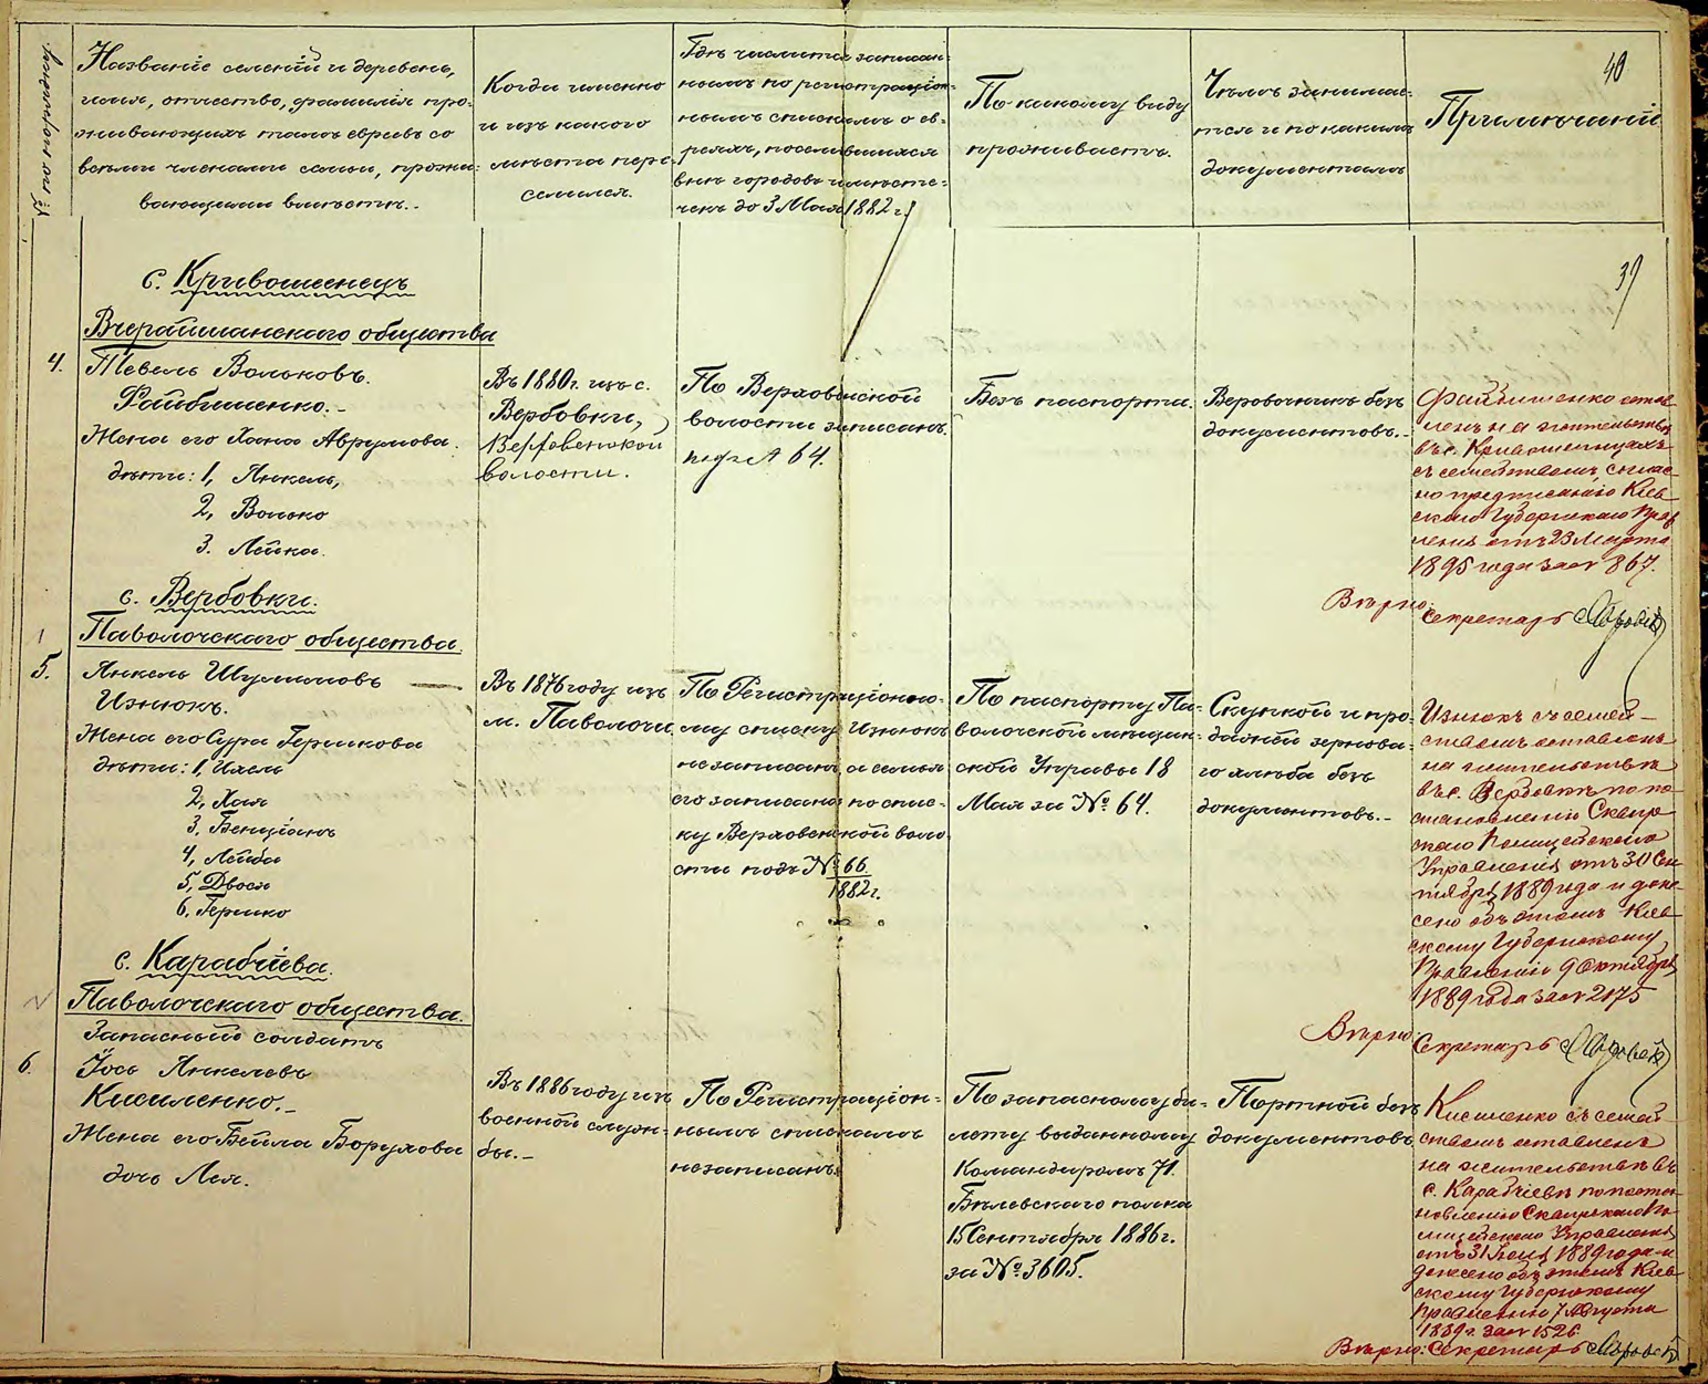 40
Названіе селеній и деревень,
имя, отчество, фамилія про-
живающихъ тамъ евреевъ со
всѣми членами семьи, прожи-
вающими вмѣстѣ.
Когда именно
и изъ какого
мѣста пере-
селился.
Гдѣ числится записан-
нымъ по регистраціон-
нымъ спискамъ о ев-
реяхъ, поселившихся
внѣ городовъ и мѣсте-
чекъ до 3 Мая 1882 г.
По какому виду
проживаетъ.
Чѣмъ занимае-
тся и по какимъ
документамъ
Примѣчаніе
39
с. Кривошеенецъ
Вчерайшанскаго общества
4. Тевель Вольковъ
Файбишенко.-
Жена его Хана Аврумова.
дѣти: 1, Янкель,
2, Волько
3. Лейка.
Въ 1880 г. изъ с.
Вербовки,
Верховенской
волости.
По Верховенской
волости записанъ
под № 64.
Безъ паспорта.
Веровочникъ безъ
документовъ.-
Файбишенко остав
ленъ на жительствѣ
въ с. Кривошеинцахъ
съ семействомъ, соглас
но предписанію Кіев
скаго Губернскаго Прав
ленія отъ 23 Марта
1895 года за № 867.
Вѣрно:
Секретарь
с. Вербовки.
1 Паволочскаго общества.
5. Янкель Шулимовъ
Изнюкъ.
Жена его Сура Гершкова
дѣти: 1, Ихель
2, Хая
3, Бенціонъ
4, Лейба
5, Двося
6. Гершко
Въ 1876 году изъ
м. Паволочи
По Регистраціонно-
му списку Изнюкъ
незаписанъ, а семья
его записана по спис-
ку Верховенской воло
сти подъ № 66
1882 г.
По паспорту Па-
волочской мѣщан-
ской Управы 18
Мая за № 64.
Скупкой и про-
дажей зернова-
го хлѣба безъ
документовъ.-
Изнюкъ съ семей-
ствомъ оставленъ
на жительствѣ
въ с. Вербовкѣ по по-
становленію Сквир
скаго Полицейскаго
Управленія отъ 30 Сен
тября 1889 года и доне-
сено объ этомъ Кіев
скому Губернскому
Правленію 9 Октября
1889 года за № 2175
Вѣрно:
Секретарь
с. Карабчіева.
Паволочскаго общества.
Запасный солдатъ
6. Іось Янкелевъ
Кисиленко.-
Жена его Бейла Борухова
дочь Лея.
Въ 1886 году изъ
военной служ-
бы.-
По Регистраціон-
нымъ спискамъ
незаписанъ.
По запасному би-
лету выданному
Командиромъ 71.
Бѣлевскаго полка
15 Сентября 1886 г.
за № 3605.
Портной безъ
документовъ
Кисиленко съ семей
ствомъ оставленъ
на жительствѣ въ
с. Карабчіевѣ по поста
новленію Сквирскаго По-
лицейскаго Управленія
отъ 31 Іюля 1889 года и
донесено объ этомъ Кіев
скому Губернскому
Правленію 7 Августа
1889 г. за № 1526.
Вѣрно: Секретарь